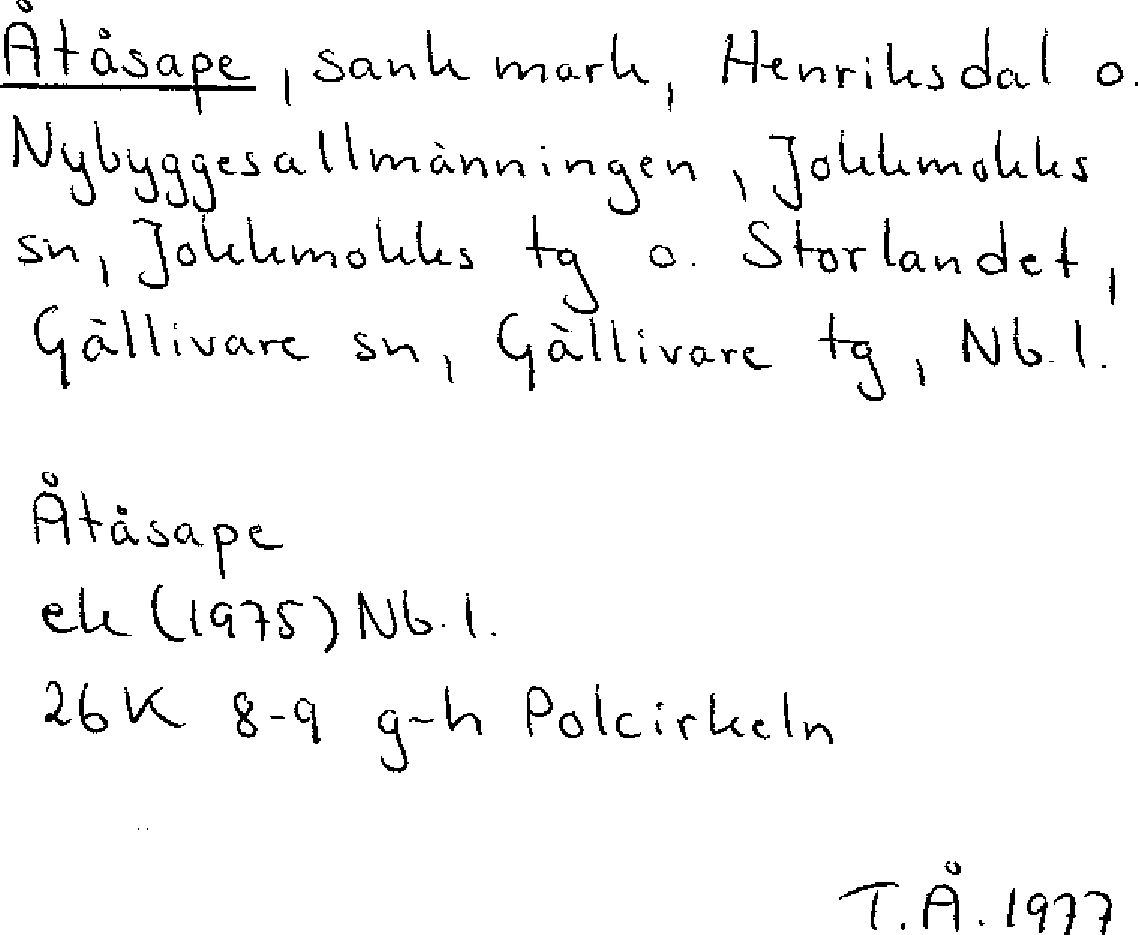 Åtåsape, sank mark, Henriksdal o.
Nybyggesallmänningen, Jokkmokks
sn, Jokkmokks tg o. Storlandet,
Gällivare sn, Gällivare tg, Nb. l.
Åtåsape
ek (1975) Nb. l.
26K 8-9 g-h Polcirkeln
T.Å. 1977